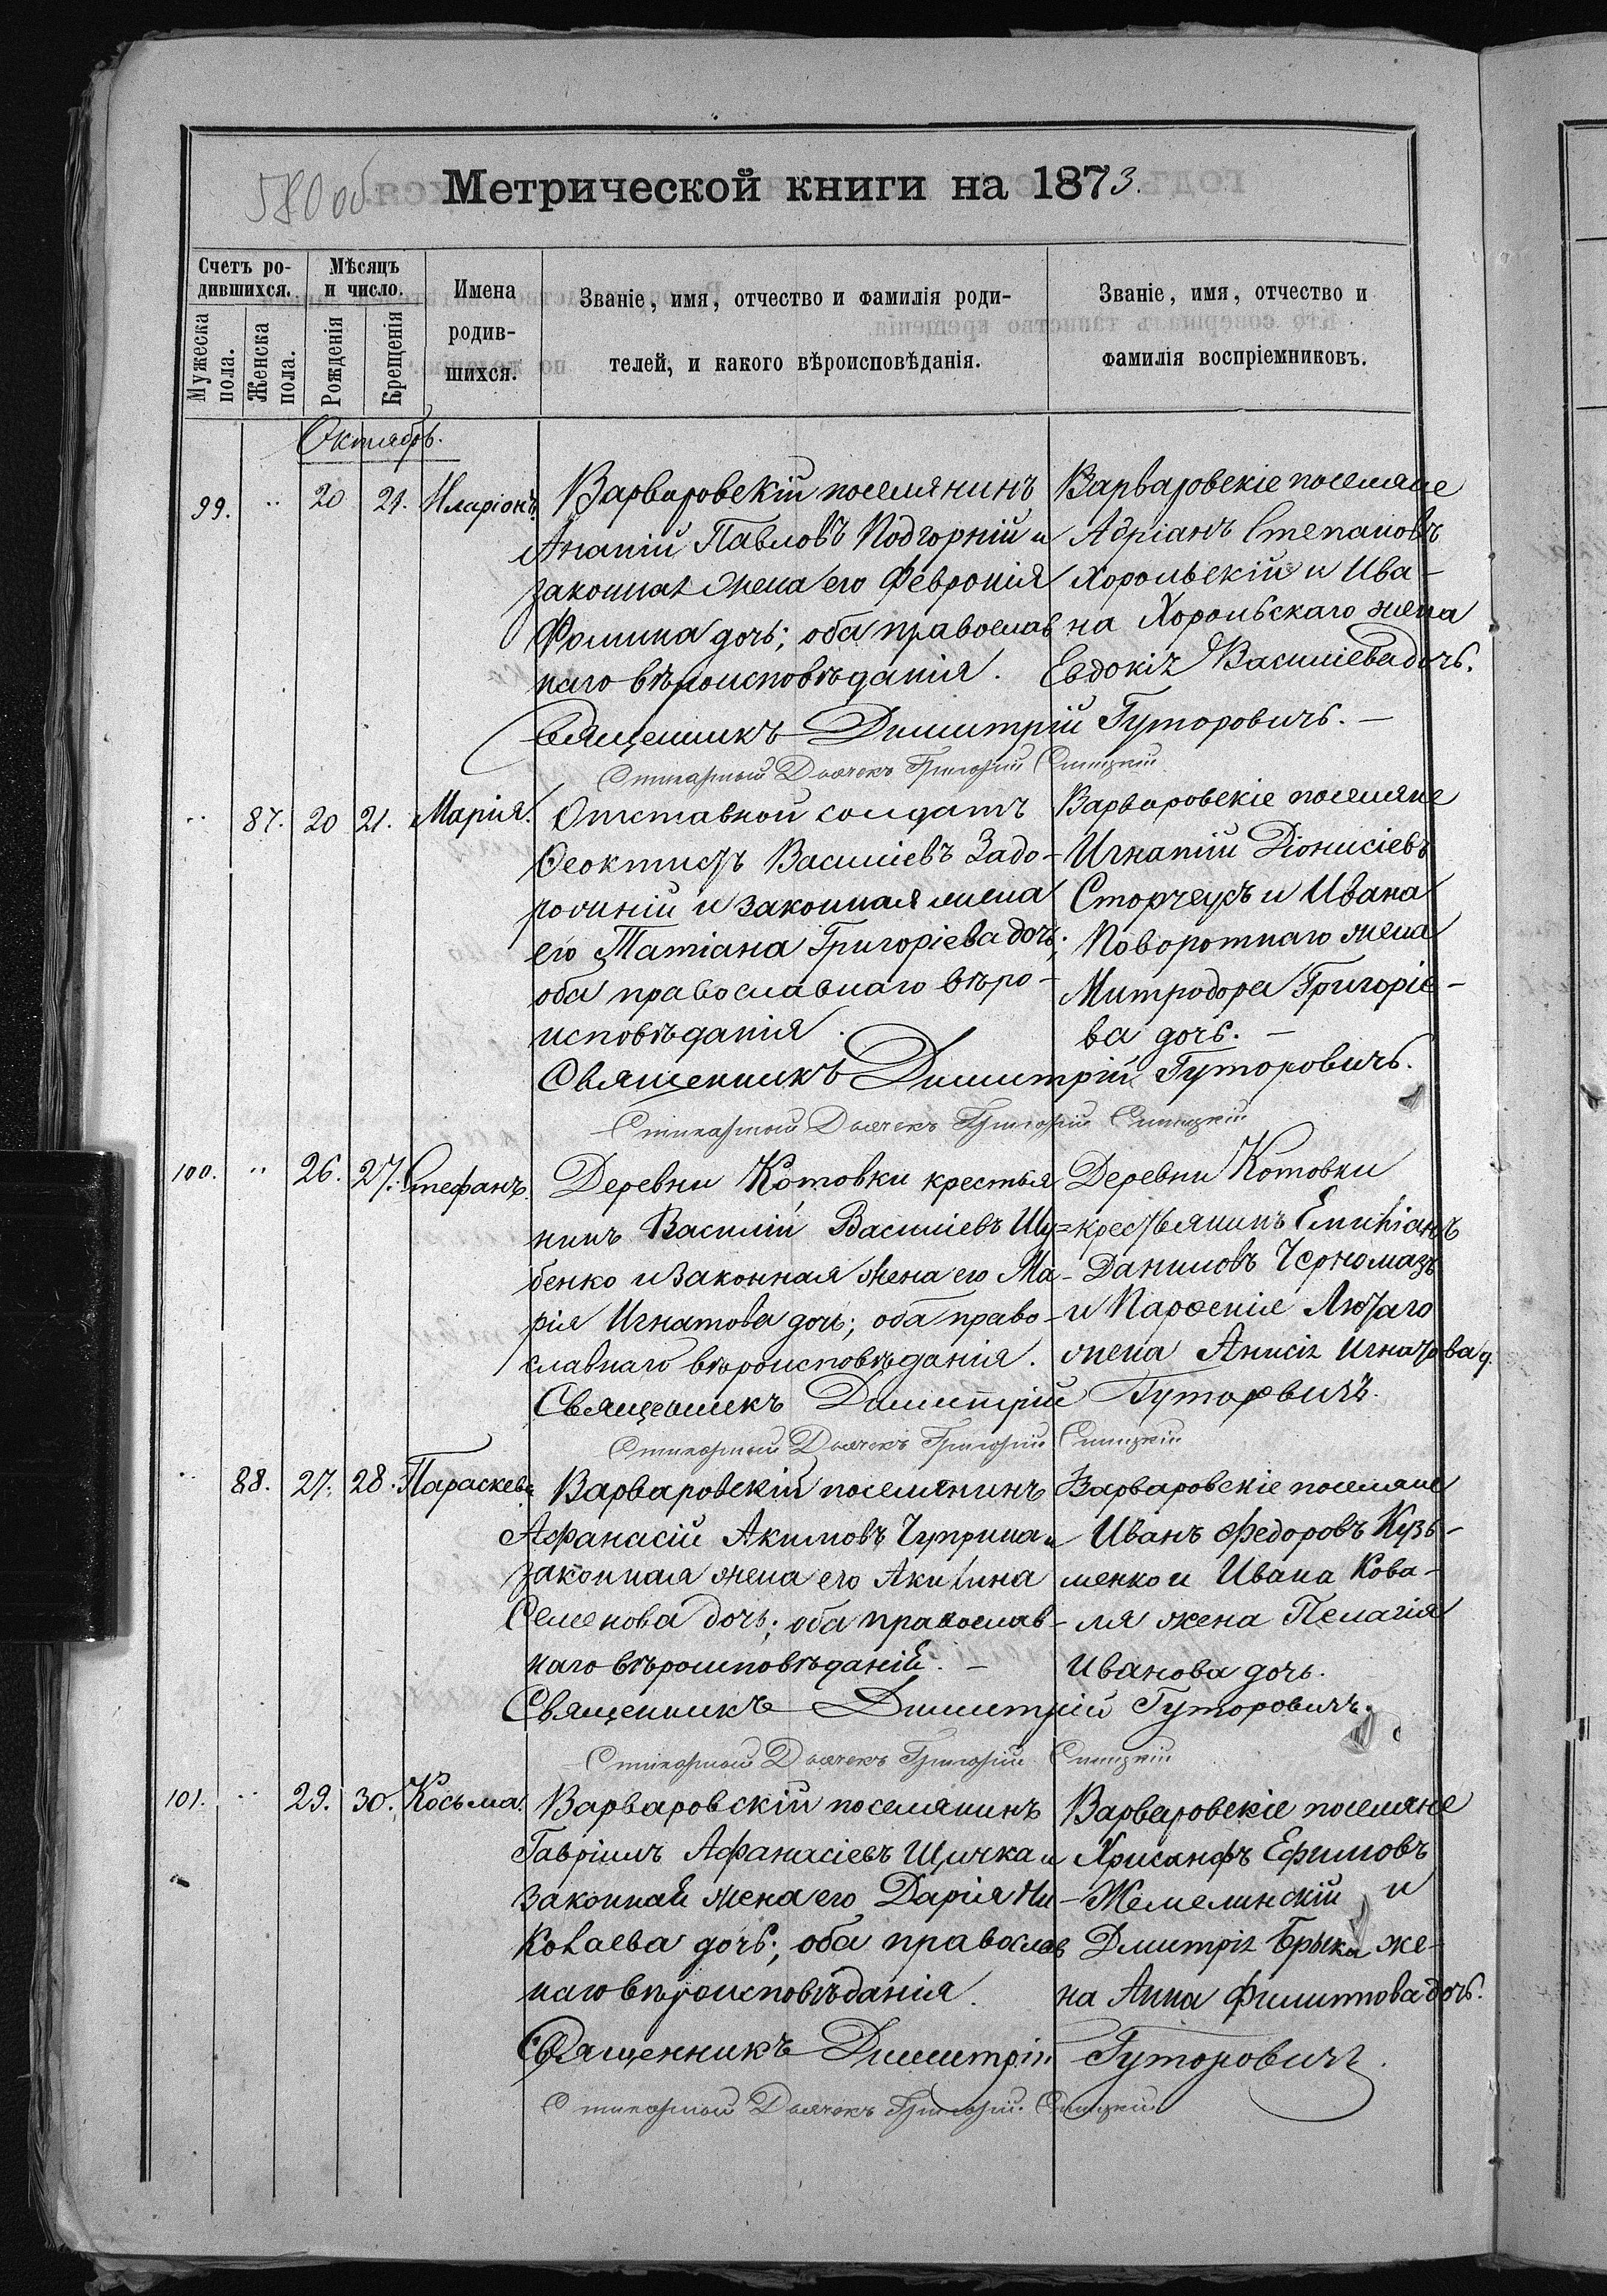 580 об
Метрической книги на 1873.
Счетъ родившихся.
Мѣсяцъ и число.
Мужеска пола.
Женска пола.
Рожденія
Крещенія
Имена родившихся.
Званіе, имя, отчество и фамилія родителей, и какого вѣроисповѣданія.
Званіе, имя, отчество и фамилія воспріемниковъ.
Октябрь.
99. " 20 21. Иларіонъ.
Варваровскій поселянинъ
Ананій Павловъ Подгорній и
законная жена его Февронія
Фомина дочь; оба православ
наго вѣроисповѣданія.
Варваровскіе поселяне
Адріанъ Степановъ
Хорольскій и Ива-
на Хорольскаго жена
Евдокія Василіева дочь.
Священникъ Димитрій Гуторовичъ.
Стихарный Дьячекъ Григорій
" 87. 20 21. Марія.
Отставной солдатъ
Ѳеоктистъ Василіевъ Задо-
рожній и законная жена
его Татіана Григоріева дочь;
оба православнаго вѣро-
исповѣданія.
Варваровскіе поселяне
Игнатій Діонисіевъ
Сторчеусъ и Ивана
Поворотнаго жена
Митродора Григоріе-
ва дочь.
Священникъ Димитрій Гуторовичъ.
Стихарный Дьячекъ Григорій
100. " 26. 27. Стефанъ.
Деревни Котовки крестья
нинъ Василій Василіевъ Шу=
бенко и законная жена его Ма-
рія Игнатова дочь; оба право-
славнаго вѣроисповѣданія.
Деревни Котовки
крестьянинъ Емиліанъ
Даниловъ Черномазъ
и Парѳенія Лютаго
жена Анисія Игнатова д.
Священникъ Димитрій Гуторовичъ.
Стихарный Дьячекъ Григорій
" 88. 27. 28. Параскева
Варваровскій поселянинъ
Афанасій Акимовъ Чуприна и
законная жена его Акилина
Семенова дочь; оба православ-
наго вѣроисповѣданій.
Варваровскіе поселяне
Иванъ Федоровъ Кузь-
менко и Ивана Кова-
ля жена Пелагія
Иванова дочь.
Священникъ Димитрій Гуторовичъ.
Стихарный Дьячекъ Григорій
101. " 29. 30. Косьма.
Варваровскій поселянинъ
Гавріилъ Афанасіевъ Щичка и
законная жена его Дарія Ни-
колаева дочь; оба православ
наго вѣроисповѣданія.
Варваровскіе поселяне
Хрисанфъ Ефимовъ
Жемелинскій и
Дмитрія Брыки же-
на Анна Филиппова дочь.
Священникъ Димитрій Гуторовичъ.
Стихарный Дьячекъ Григорій